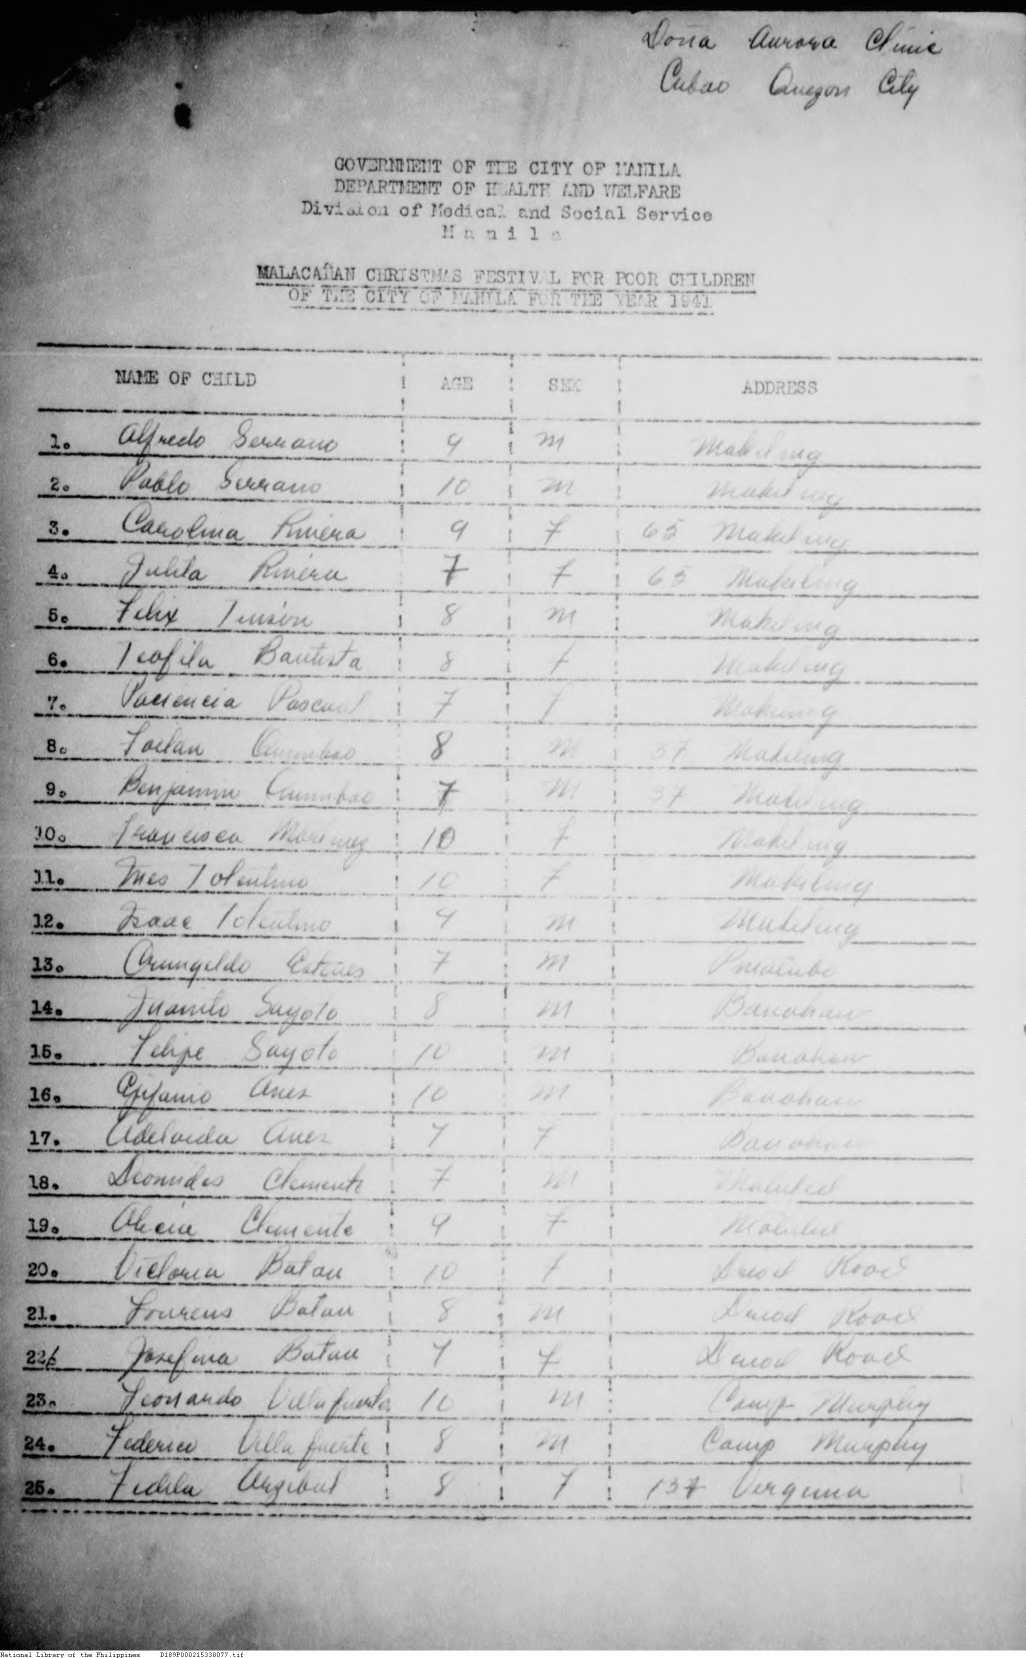 Doña Aurora Clinic
Cubao Quezon City
GOVERNMENT OF THE CITY OF MANILA
DEPARTMENT OF HEALTH AND WELFARE
Division of Medical and Social Service
Manila
MALACAÑAN CHRISTMAS FESTIVAL FOR POOR CHILDREN
OF THE CITY OF MANILA FOR THE YEAR 1941
NAME OF CHILD AGE SEX ADDRESS
1. Alfredo Serrano 9 m Makiling
2. Pablo Serrano 10 m Makiling
3. Carolina Rivera 9 f 65 Makiling
4. Julita Rivera 7 f 65 Makiling
5. Felix 8 m Makiling
6. Teofila Bautista 8 f Makiling
7. Paciencia Pascual 7 f Makiling
8. 8 m 37 Makiling
9. Benjamin 7 m 37 Makiling
10. Francisca 10 f Makiling
11. Ines Tolentino 10 f Makiling
12. Isaac Tolentino 9 m Makiling
13. 7 m
14. Juanito Sayoto 8 m Banahaw
15. Felipe Sayoto 10 m Banahaw
16. Epifanio 10 m Banahaw
17. Adelaida 7 f Banahaw
18. Clemente 7 m
19. Alicia Clemente 9 f
20. Victoria Batan 10 f Road
21. Batan 8 m Road
22. Josefina Batan 7 f Road
23. Leonardo Villafuerte 10 m Camp Murphy
24. Federico Villafuerte 8 m Camp Murphy
25. Fidela 8 f 137 Virginia
National Library of the Philippines D189P000215338077.tif